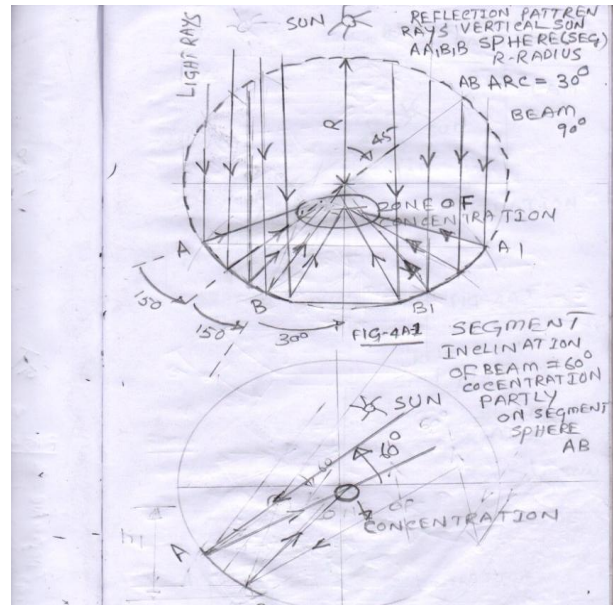 SUN
REFLECTION PATTREN
RAYS VERTICAL SUN
AA1B1B SPHERE(SEG)
R-RADIUS
AB ARC = 30°
BEAM
90°
LIGHT RAYS
R
45
ZONE OF
CONCENTRATION
A
A1
B
B1
150
150
30°
FIG-4A1
SEGMENT
INCLINATION
OF BEAM = 60°
COCENTRATION
PARTLY
ON SEGMENT
SPHERE
AB
SUN
60°
60
OF
CONCENTRATION
A